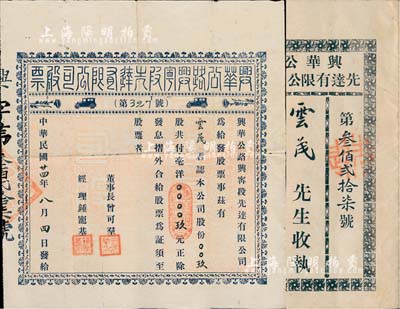 上海阳明拍卖
興華公路興寧段先達有限公司股票
(第327號)
興華公路興寧段先達有限公司
為給發股票事茲有
雲茂君認本公司股份〇〇玖
股共付毫洋〇〇〇〇玖元正除
發息摺外合給股票為証須至
股票者
董事長曾可羣
經理鍾寵基
中華民國廿四年八月四日發給
興華公
先達有限公
第叁佰弍拾柒號
雲茂先生收執